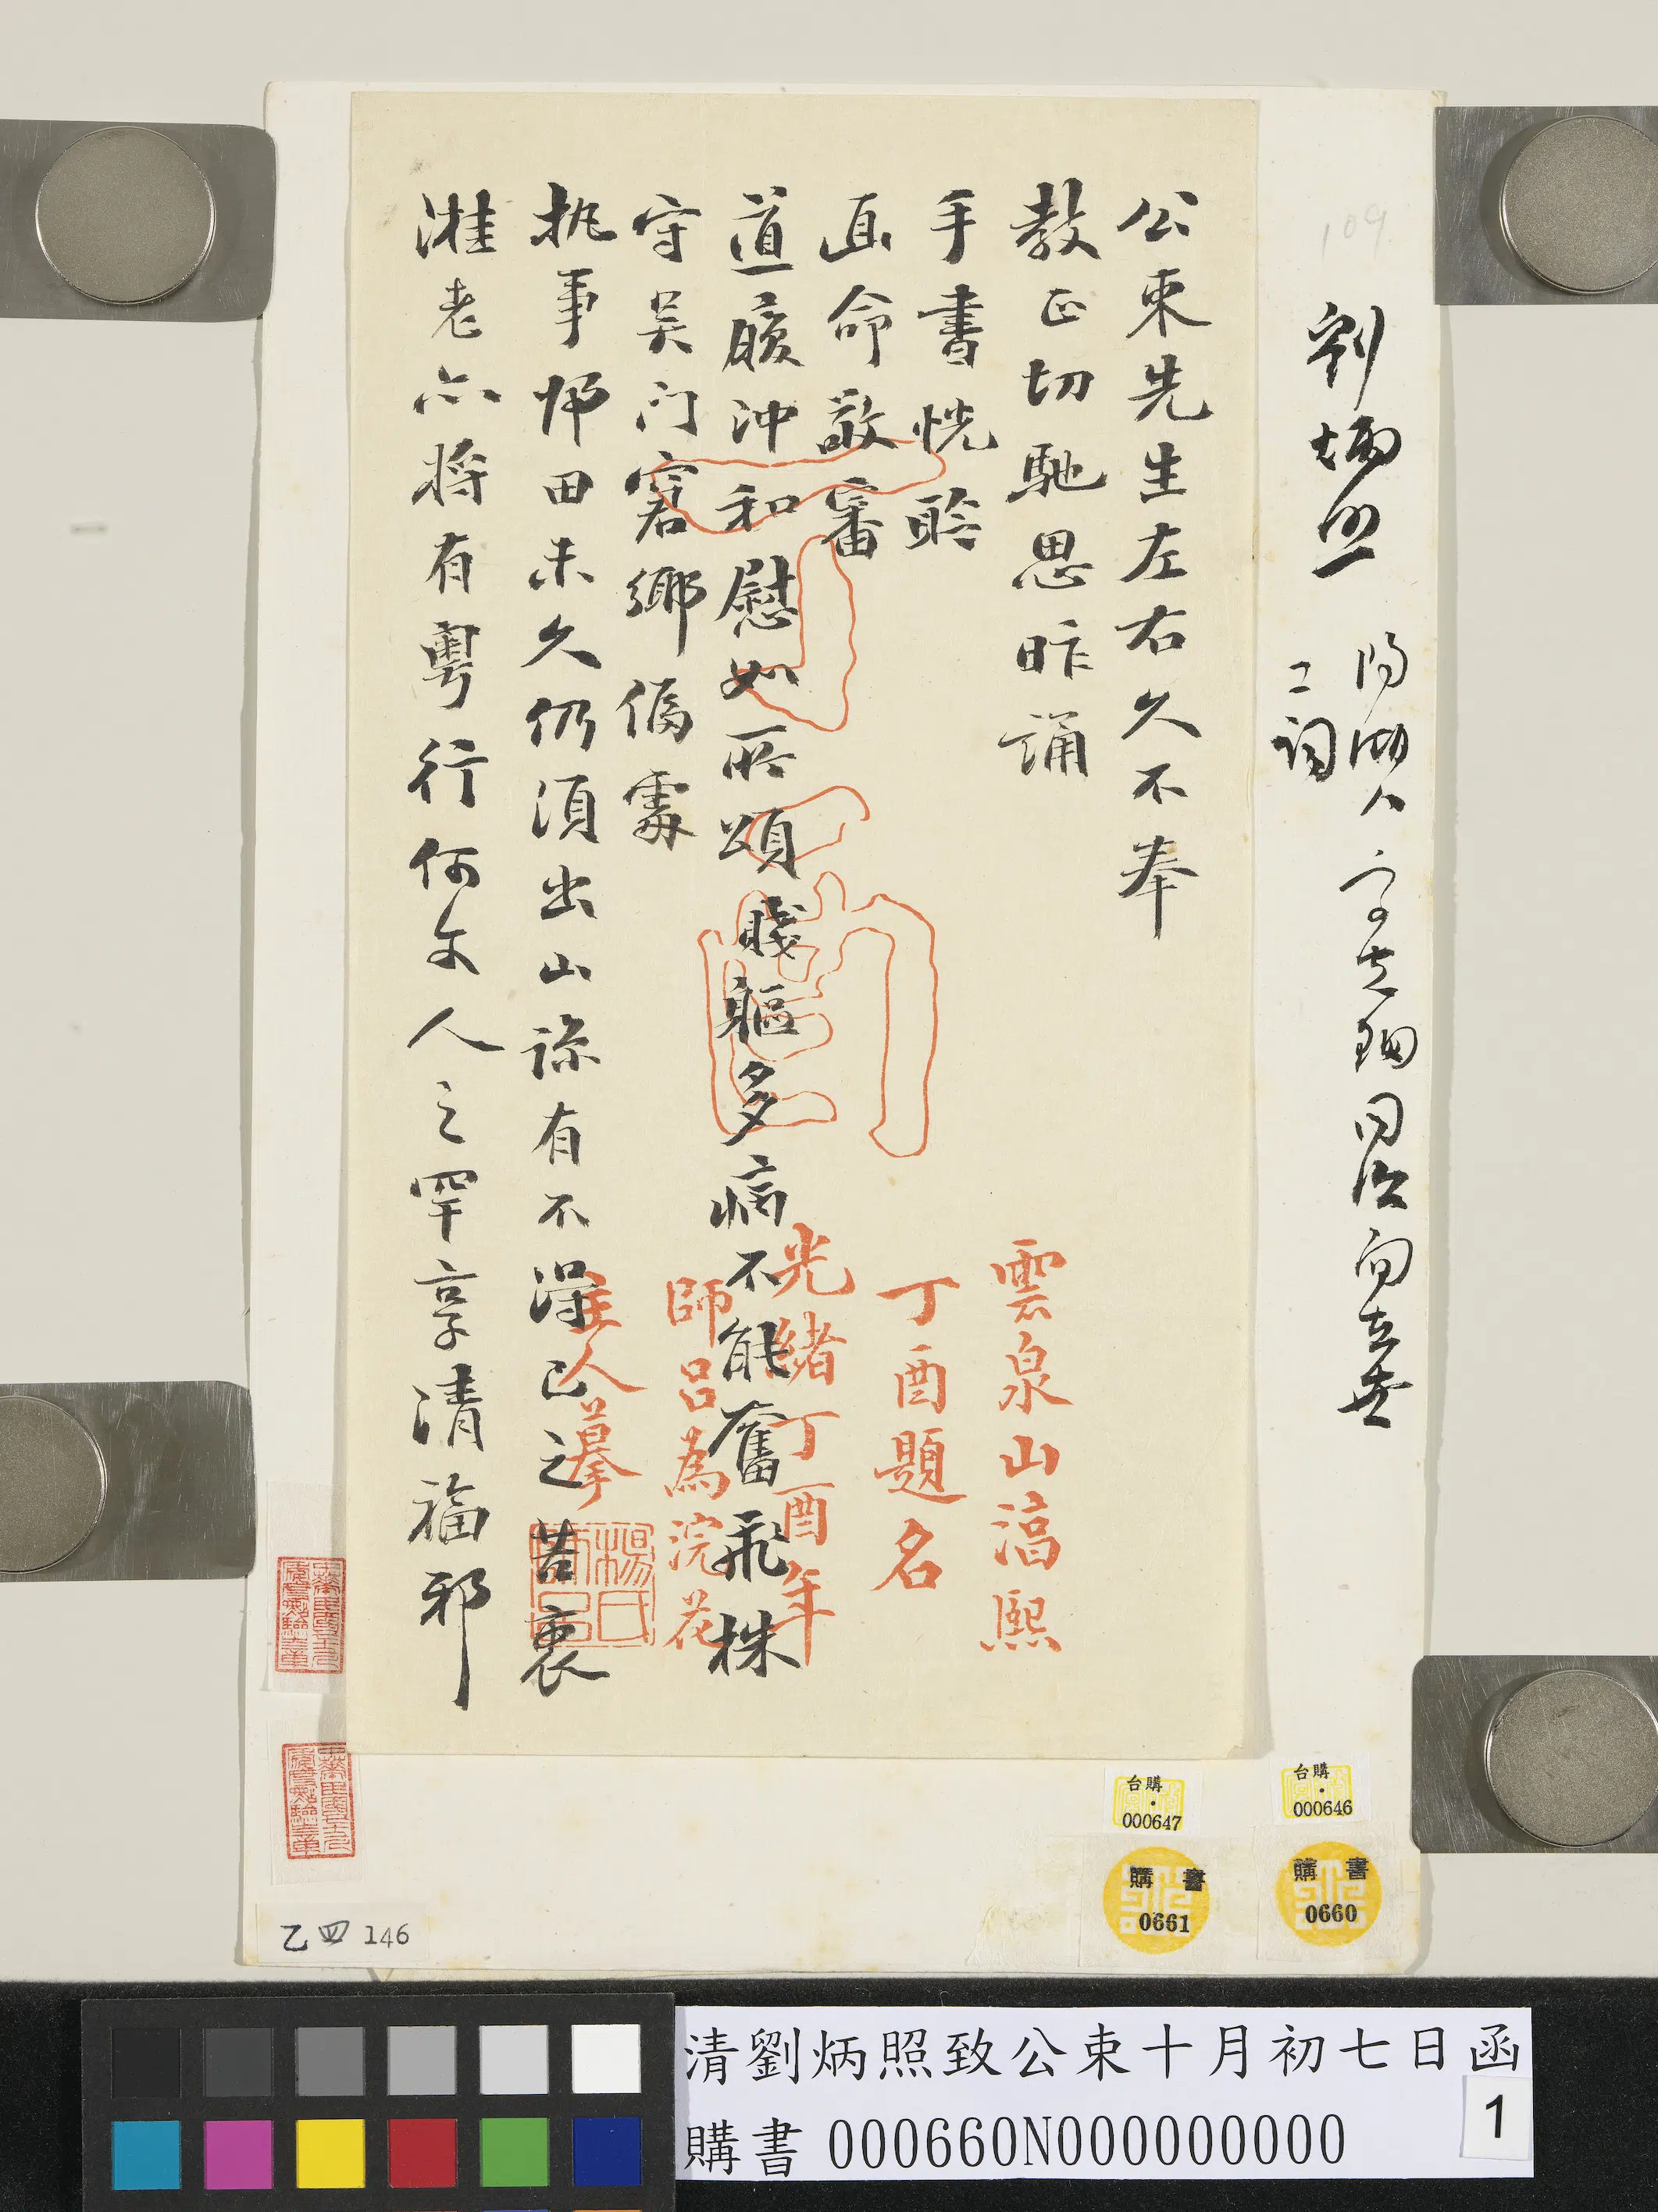 劉炳照
陽湖人
工詞
109
公束先生左右久不奉
教正切馳思昨誦
手書恍聆
面命敬審
道履沖和慰如所頌賤軀多病不能奮飛株
守吳门窘鄉偪處
执事帰田未久仍須出山諒有不得已之苦衷
淮老亦将有粵行何尔人之罕享清福邪
雲泉山滈熙
丁酉題名
光緒丁酉年
師呂為浣花
主人摹
楊氏
師呂
乙四146
台購
000647
台購
000646
購書
0661
購書
0660
清劉炳照致公束十月初七日函
購書 000660N000000000
1